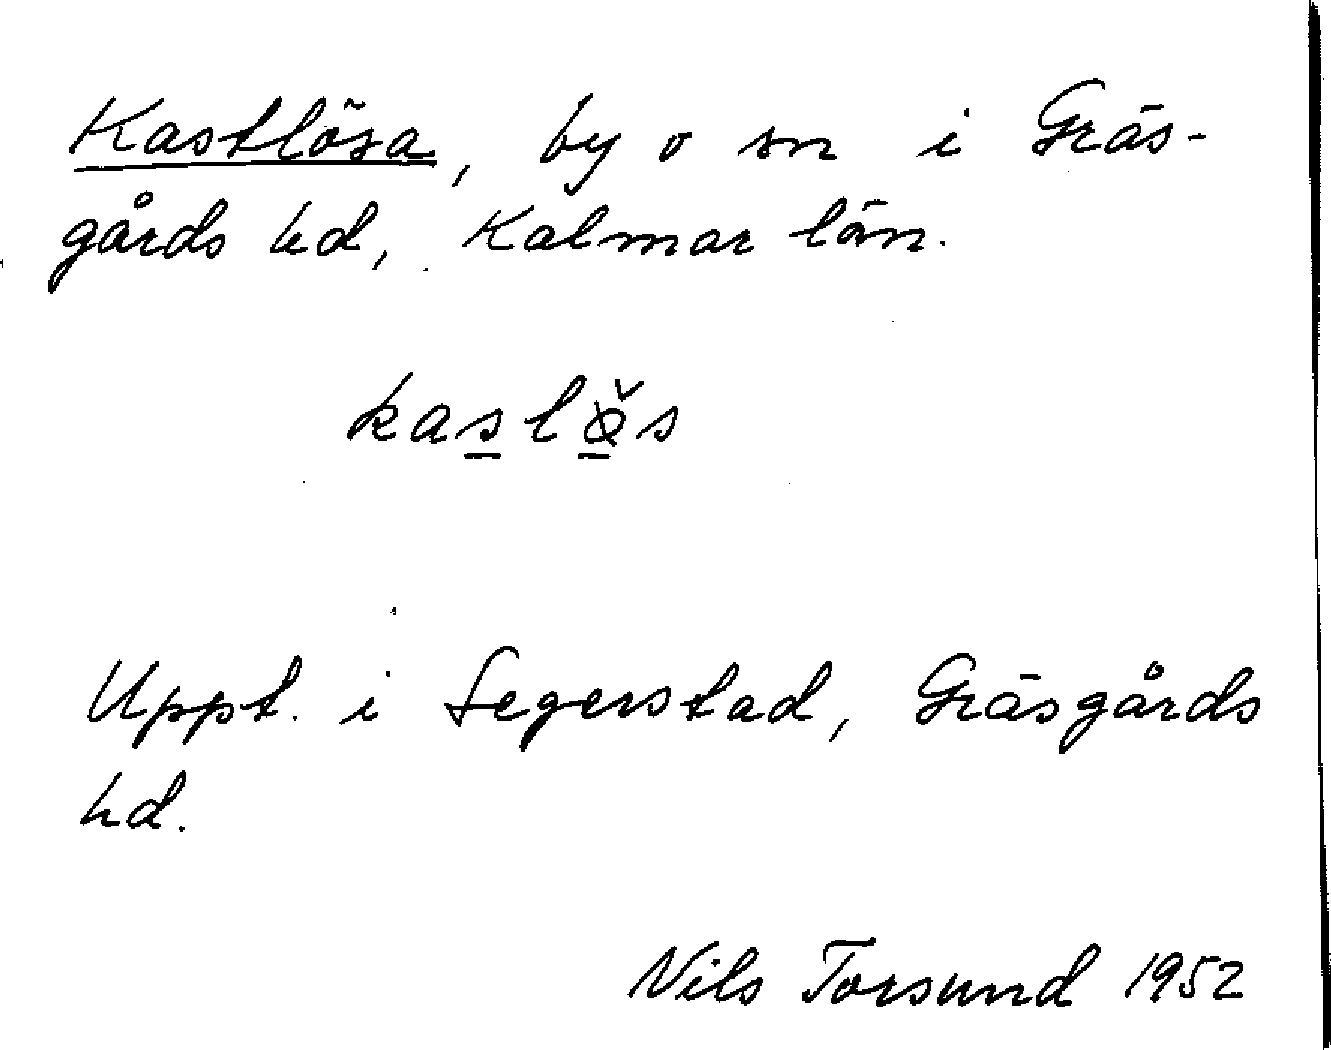 Kastlösa, by o sn i Gräs-
gårds hd, Kalmar län.
kaslø̌s
Uppt. i Segerstad, Gräsgårds
hd.
Nils Torsund 1952